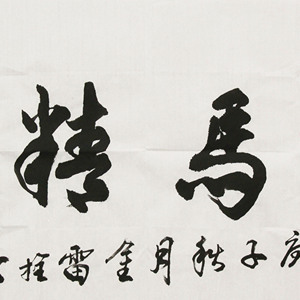 馬精
庚子秋月金雷拴